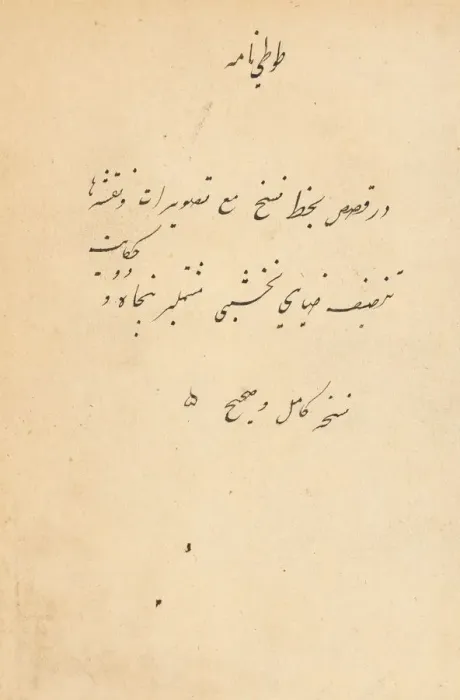 طوطي نامه
در قصص بخط نسخ مع تصويرات و نقشها
تصنيف ضياي نخشبي مشتملبر پنجاه و دو حكايت
نسخه كامل و صحيح